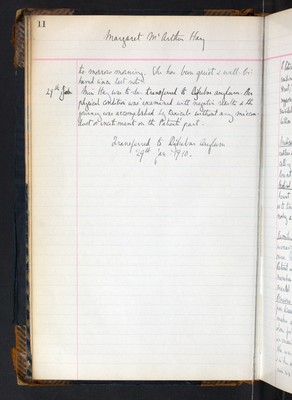 11
Margaret McArthur Hay
to morrow morning. She has been quiet & well be-
haved since last note.
29th Jan. Miss Hay was to-day transferred to Dykebar Asylum. Her
physical condition was examined with negative results & the
journey was accomplished by without any
or excitement on the Patients part.
Transferred to Dykebar Asylum
29th Jan. 1910.